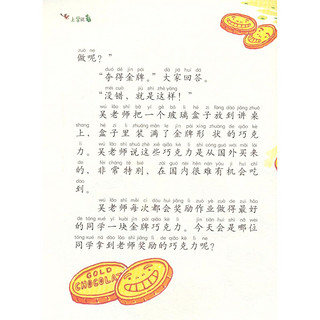 上学记
zuò ne
做呢？”
duó dé jīn pái dà jiā huí dá
“夺得金牌。”大家回答。
méi cuò jiù shì zhè yàng
“没错，就是这样！”
wú lǎo shī bǎ yí gè bō li hé zi fàng dào jiǎng zhuō
吴老师把一个玻璃盒子放到讲桌
shang hé zi li zhuāng mǎn le jīn pái xíng zhuàng de qiǎo kè
上，盒子里装满了金牌形状的巧克
lì wú lǎo shī shuō zhè xiē qiǎo kè lì shì cóng guó wài mǎi lái
力。吴老师说这些巧克力是从国外买来
de fēi cháng tè bié zài guó nèi hěn nán yǒu jī huì chī
的，非常特别，在国内很难有机会吃
dào
到。
wú lǎo shī měi cì dōu huì jiǎng lì zuò yè zuò de zuì hǎo
吴老师每次都会奖励作业做得最好
de tóng xué yí kuài jīn pái qiǎo kè lì jīn tiān huì shì nǎ wèi
的同学一块金牌巧克力。今天会是哪位
tóng xué ná dào lǎo shī jiǎng lì de qiǎo kè lì ne
同学拿到老师奖励的巧克力呢？
GOLD
CHOCOLAT